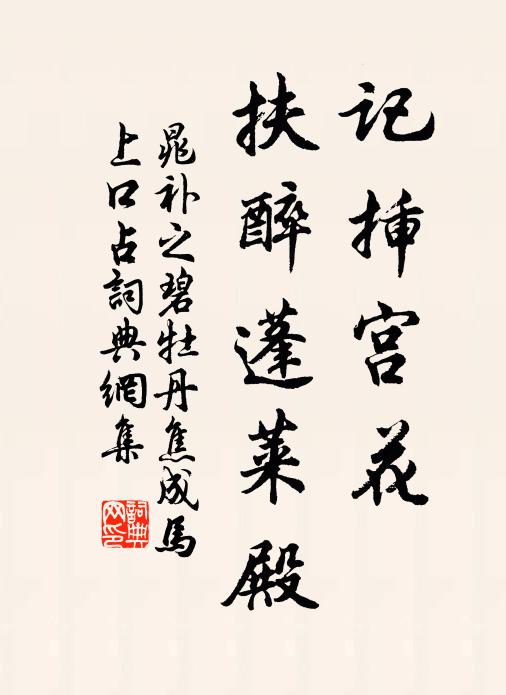 记插宫花
扶醉蓬莱殿
晁补之碧牡丹焦成馬
上口占詞典網集
詞典
网印